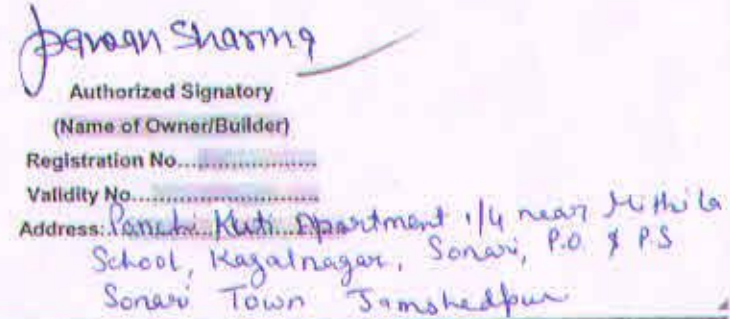 Sharma
Authorized Signatory
(Name of Owner/Builder)
Registration No..................
Validity No..................
Address: Panch Kuti Apartment 1/4 near Mithila
School, Kagalnagar, Sonari, P.O. & P.S
Sonari Town Jamshedpur